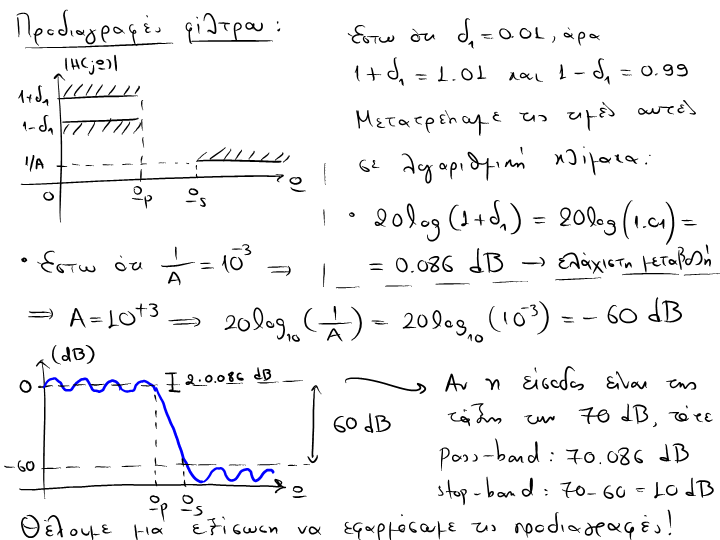 Προδιαγραφές φίλτρου:
|H(jΩ)|
1+δ₁
1-δ₁
1/A
0
Ωp
Ωs
Ω
Έστω ότι δ₁ = 0.01, άρα
1+δ₁ = 1.01 και 1-δ₁ = 0.99
Μετατρέπουμε τις τιμές αυτές
σε λογαριθμική κλίμακα:
• 20log(1+δ₁) = 20log(1.01) =
= 0.086 dB → ελάχιστη μεταβολή
• Έστω ότι 1/A = 10⁻³ ⇒
⇒ A = 10⁺³ ⇒ 20log₁₀(1/A) = 20log₁₀(10⁻³) = -60 dB
(dB)
0
2·0.086 dB
60 dB
-60
Ωp
Ωs
Ω
→ Αν η είσοδος είναι της
τάξης των 70 dB, τότε
pass-band: 70.086 dB
stop-band: 70-60 = 10 dB
Θέλουμε μιά εξίσωση να εφαρμόσουμε τις προδιαγραφές!